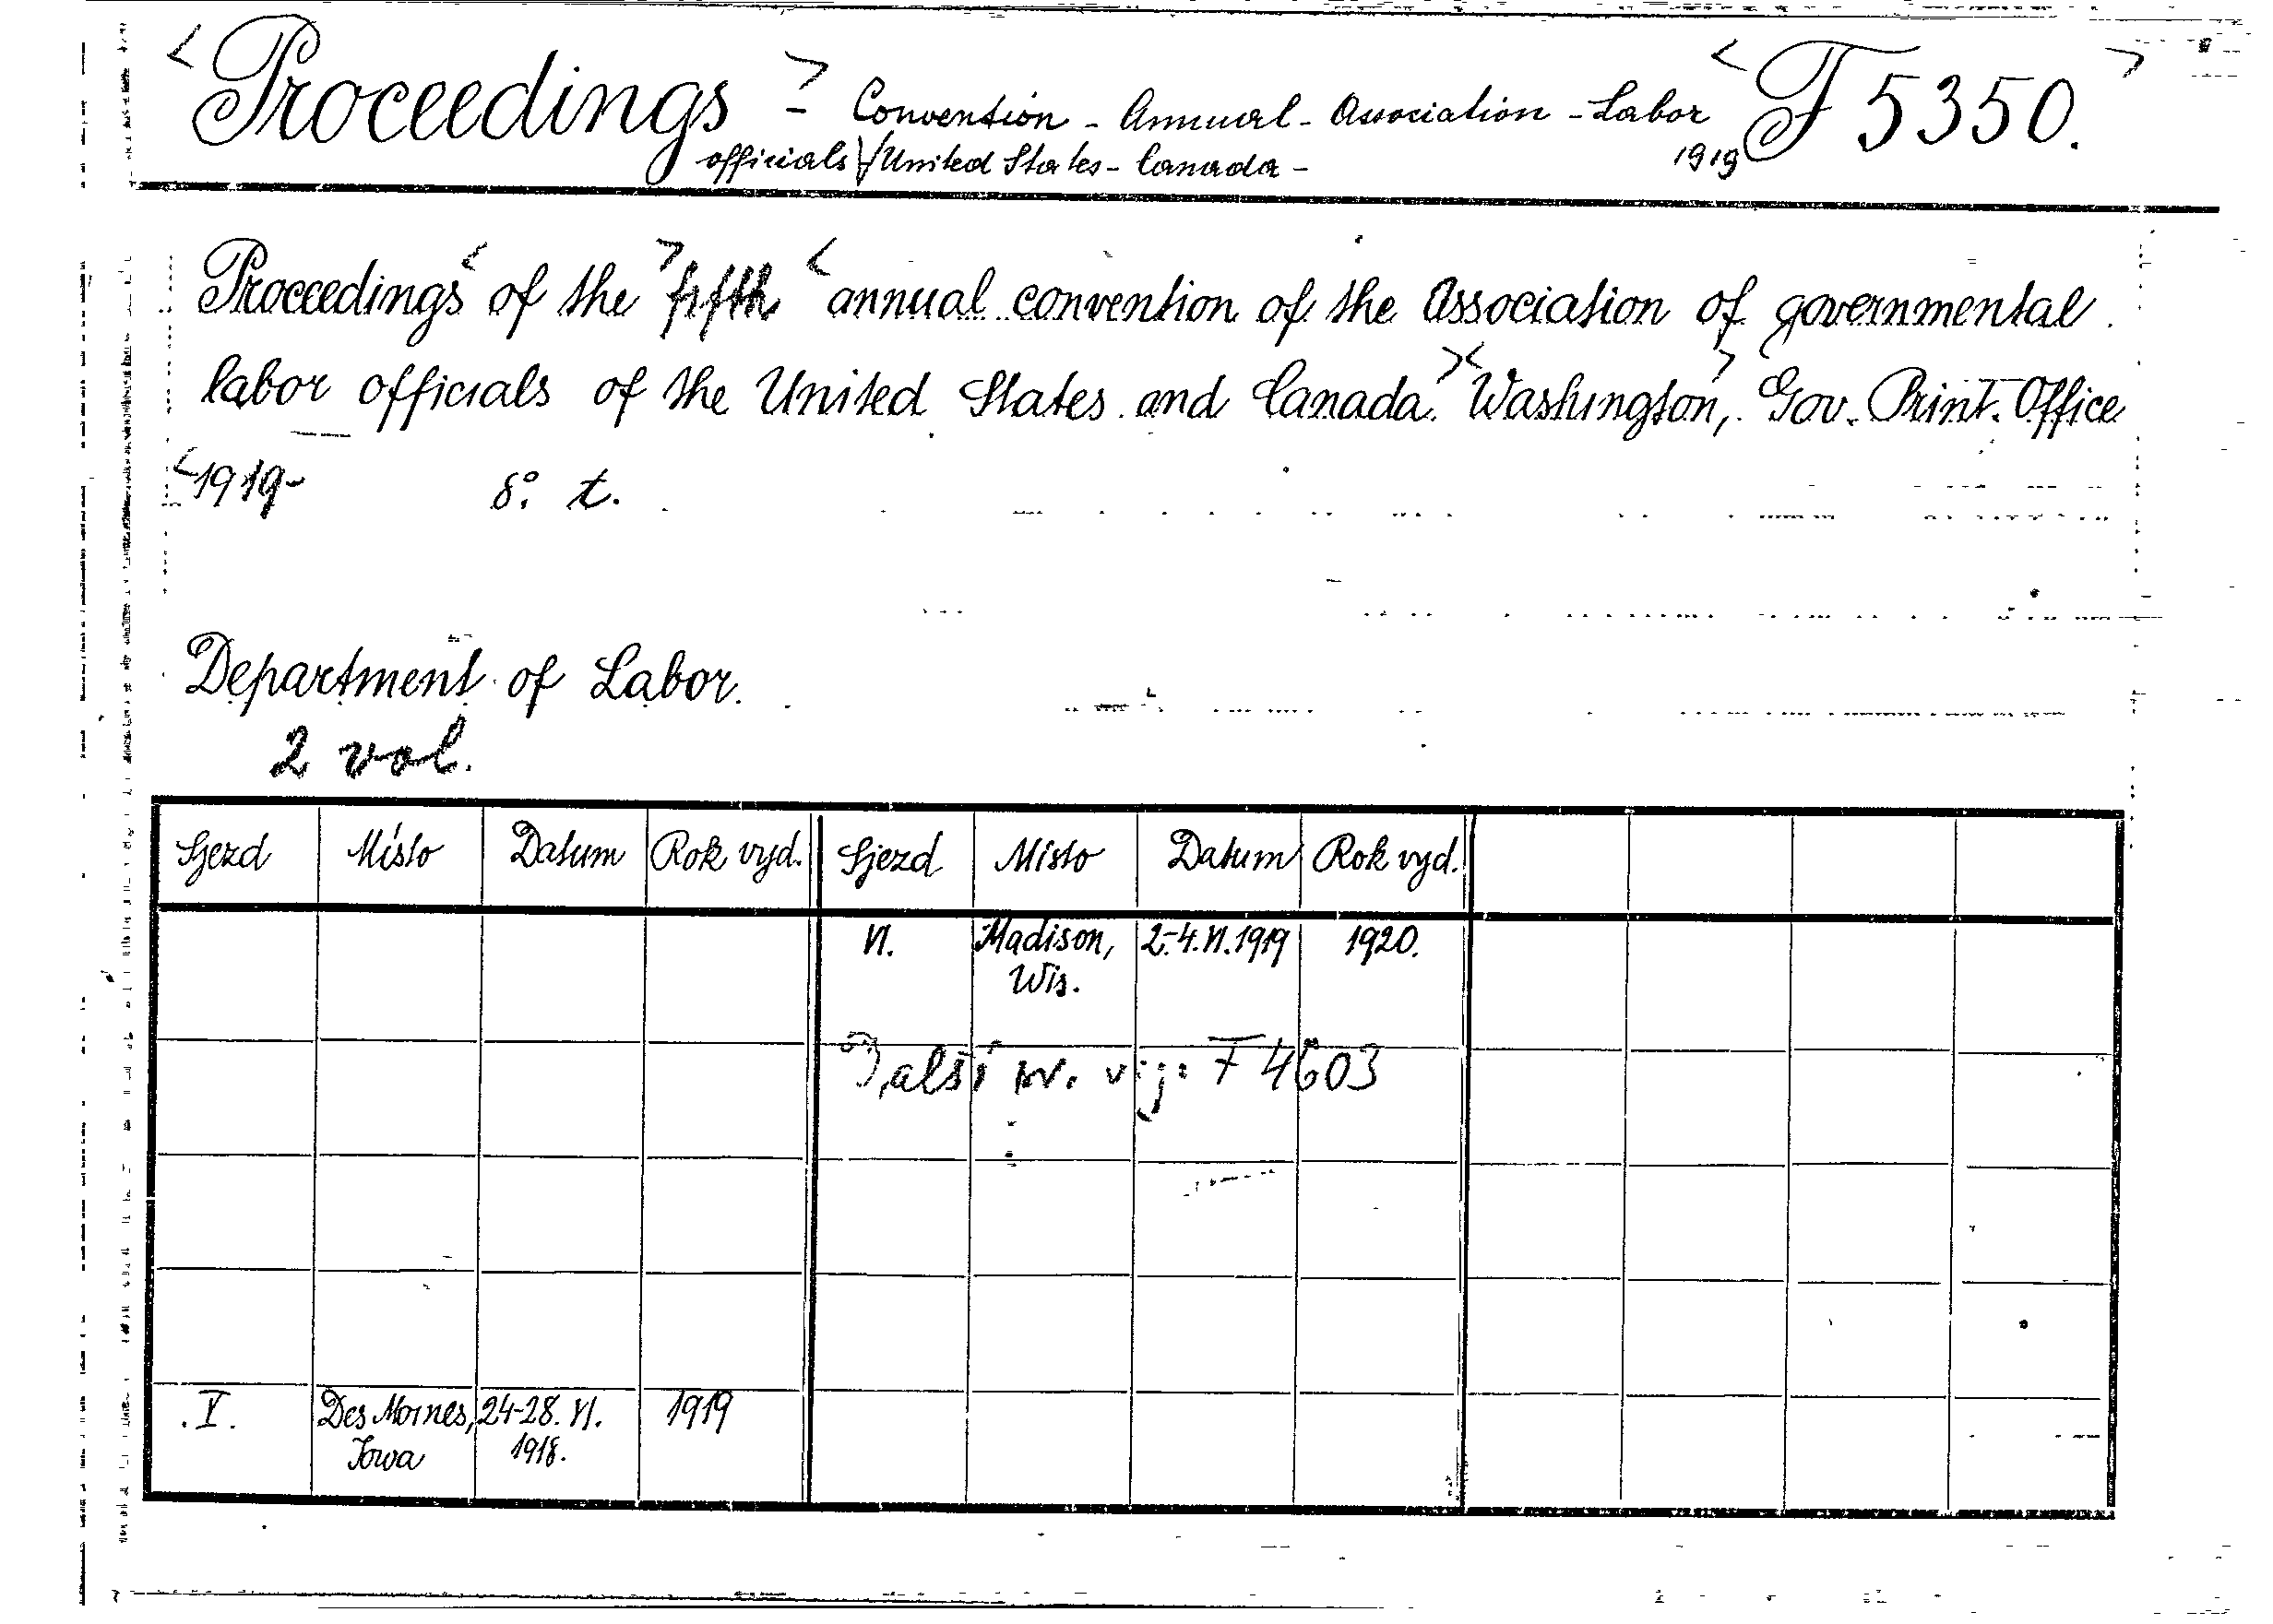 <Proceedings> - Convention - Annual - Association - Labor <F 5350.>
officials / United States - Canada - 1919
Proceedings <of the> fifth <annual convention of the Association of governmental
labor officials of the United States and Canada.><Washington,> Gov. Print. Office
<1919- 8° t.
Department of Labor.
2 vol.
Sjezd Místo Datum Rok vyd. Sjezd Místo Datum Rok vyd.
VI. Madison, 2.-4.VI.1919 1920.
Wis.
Další sv. viz: F 4603
V. Des Moines, 24-28. VI. 1919
Iowa 1918.